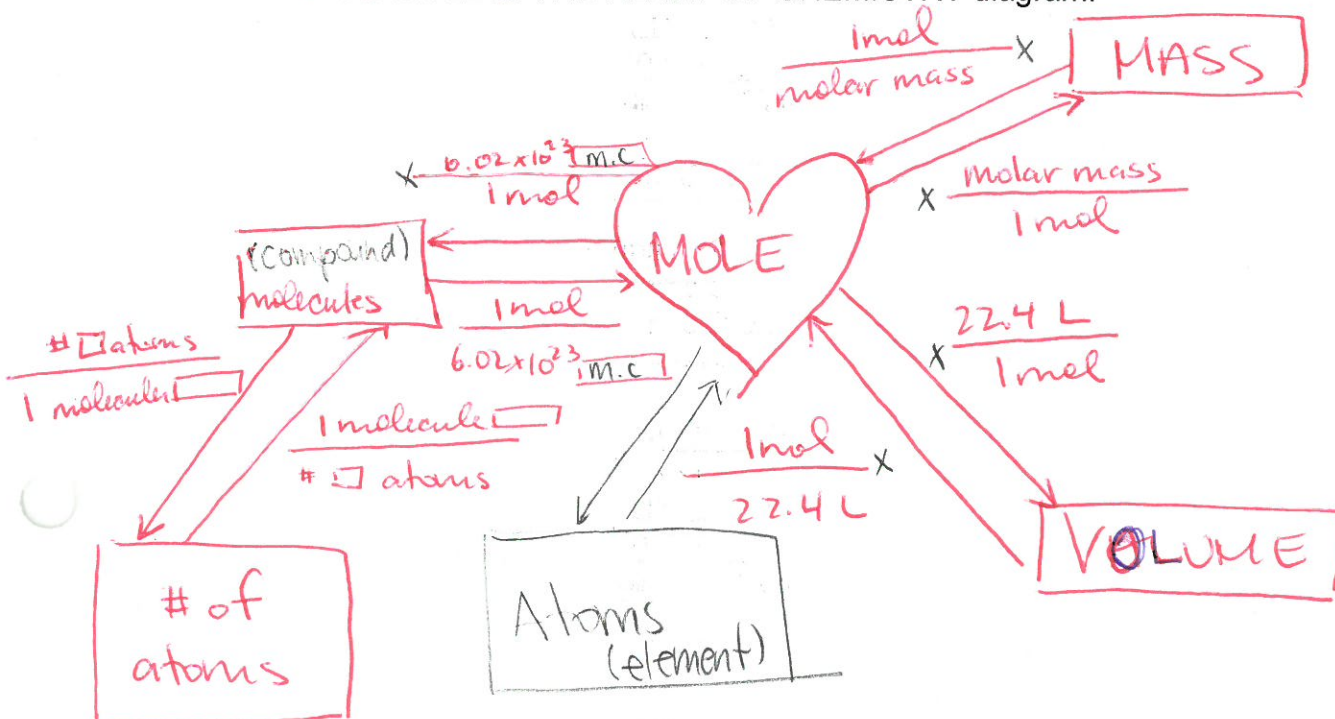 diagram.
1 mol
molar mass
x
MASS
x
6.02 x 10²³ m.c.
1 mol
x
molar mass
1 mol
(compound)
molecules
MOLE
1 mol
6.02 x 10²³ m.c
x
22.4 L
1 mol
# □ atoms
1 molecules
1 molecule
# □ atoms
1 mol
22.4 L
x
VOLUME
# of
atoms
Atoms
(element)